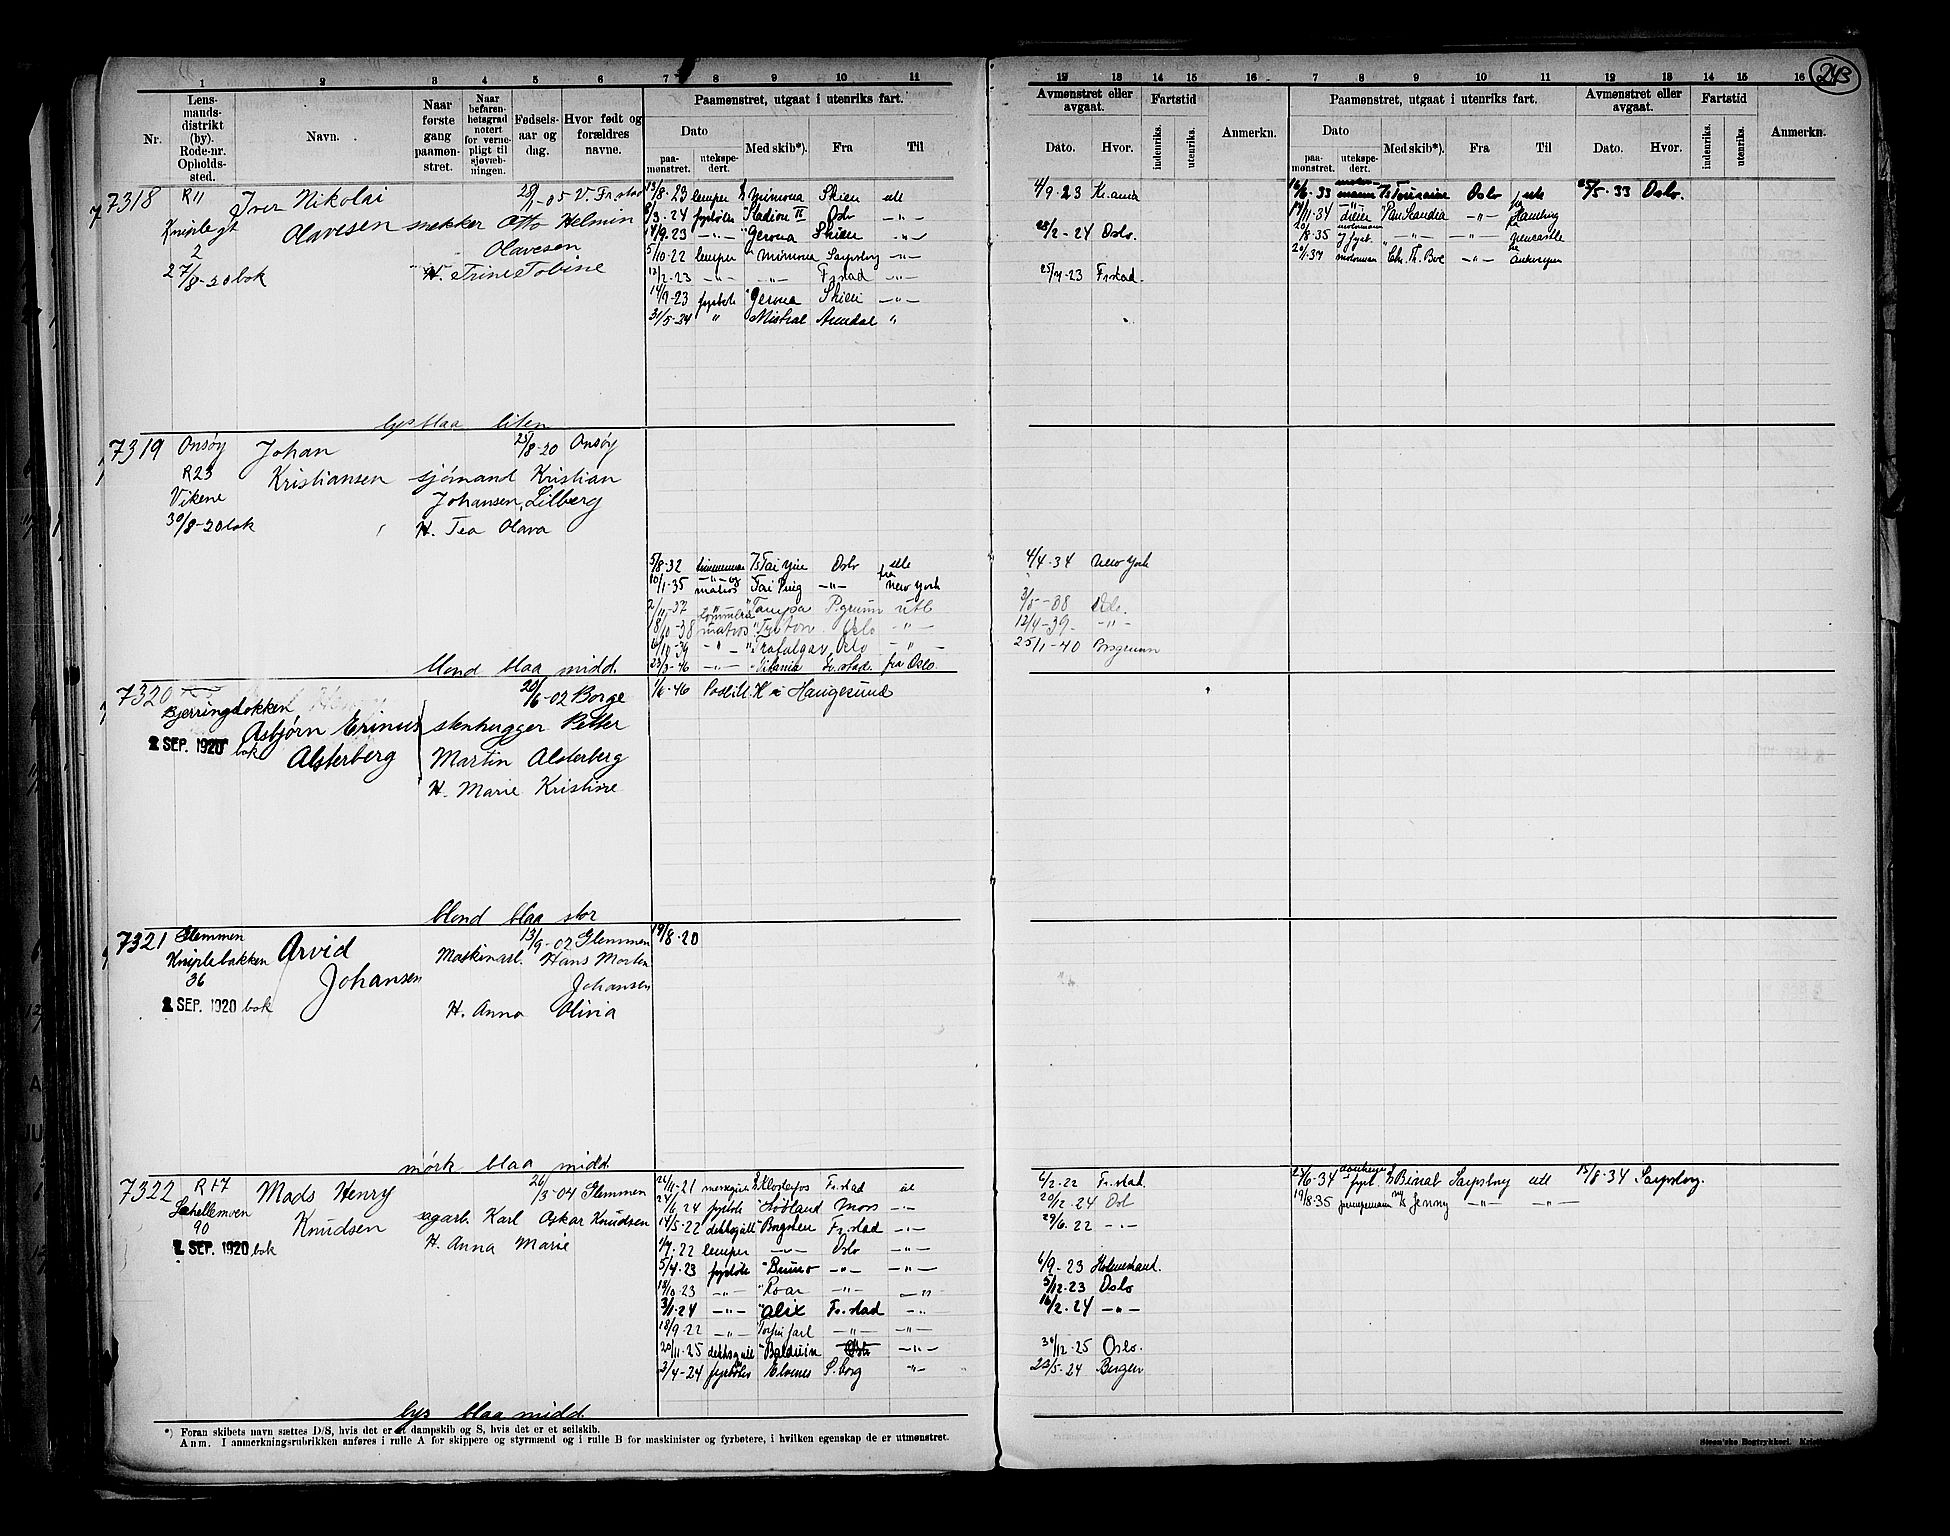 1 2 3 4 5 6 7 8 9 10 11 12 13 14 15 16 7 8 9 10 11 12 13 14 15 16 243
Nr.
Lens-
mands-
distrikt
(by).
Rode-nr.
Opholds-
sted.
Navn.
Naar
første
gang
paamøn-
stret.
Naar
befaren-
hetsgrad
notert
for verne-
pligt til
sjøvæb-
ningen.
Fødsels-
aar og
dag.
Hvor født og
forældres
navne.
Paamønstret, utgaat i utenriks fart.
Dato
paa-
mønstret.
utekspe-
dert.
Med skib*).
Fra
Til
Avmønstret eller
avgaat.
Dato.
Hvor.
Fartstid
indenriks.
utenriks.
Anmerkn.
Paamønstret, utgaat i utenriks fart.
Dato
paa-
mønstret.
utekspe-
dert.
Med skib*).
Fra
Til
Avmønstret eller
avgaat.
Dato.
Hvor.
Fartstid
indenriks.
utenriks.
Anmerkn.
7318 R11 Iver Nikolai 28/1-05 V. Fr.stad
Olavesen snekker Otto Helmin
2 Olavesen
27/8-20 bok H. Trine Tobine
13/8-23 lemper Mimona Skien utl 4/9-23 Kr.ania
8/3-24 fyrbøter Stadion II Oslo -"-
14/9-23 -"- Gerona Skien -"- 28/2-24 Oslo.
5/10-22 lemper Mimona Sarpsborg -"-
12/2-23 -"- -"- Fr.stad -"- 25/4-23 Fr.stad.
14/9-23 fyrbøt Gerona Skien -"-
31/5-24 " Mistral Arendal "
16/6-33 Touraine Oslo utl 25/5-33 Oslo.
11-34 Pan Scandia -"- Hamburg
8-35 -"- -"- Newcastle
20/1-37 motorman Chr. Th. Boe -"- Antwerpen
lys blaa liten
7319 Onsøy Johan 25/8-20 Onsøy
R23 Kristiansen sjømand Kristian
Vikene Johansen, Lilberg
30/8-20 bok H. Tea Olava
5/8-32 Tai Yin Oslo utl 4/4-34 New York
10/1-35 matros Tai Ping -"- fra New York
2/11-37 Tampa P.grunn utl 3/5-38 Oslo.
18/10-38 matros Triton Oslo -"- 12/4-39 -"-
10-39 -"- Trafalgar Oslo -"- 25/1-40 Porsgrunn
23/3-46 -"- Titania Fr.stad. fra Oslo.
blond blaa midd.
7320 20/6-02 Borge 1/6-46 H i Haugesund
Bjerringdokken
Asbjørn Erinus stenhugger Petter
2 SEP. 1920 bok Alsterberg Martin Alsterberg
H. Marie Kristine
blond blaa stor
7321 Glemmen Arvid 13/9-02 Glemmen 19/8-20
Kniplebakken Maskinarb. Hans Morten
36 Johansen Johansen
2 SEP. 1920 bok H. Anna Olivia
mørk blaa midd.
7322 R17 Mads Henry 26/3-04 Glemmen
90 Knudsen sagarb. Karl Oskar Knudsen
2 SEP. 1920 bok H. Anna Marie
24/11-21 Klosterfos Fr.stad ut 6/2-22 Fr.stad.
24/6-24 fyrbøte Moss -"- 20/12-24 Osl
14/5-22 dekksgutt Borgsten Fr.stad -"- 29/6-22 -"-
1/7-22 lemper -"- Oslo -"-
5/4-23 fyrbøte Bruno -"- -"- 6/9-23 Holmestrand.
18/10-23 -"- Roar -"- -"- 5/12-23 Oslo
3/1-24 -"- Alix Fr.stad -"- 16/2-24 -"-
18/9-22 -"- Torfin Jarl -"- -"-
20/11-25 dekksgutt Balduin Oslo -"- 30/12-25 Oslo.
3/4-24 fyrbøter S.borg -"- 20/5-24 Bergen
25/6-34 fyrb. Binal Sarpsborg utl 15/8-34 Sarpsborg.
19/8-35 Jenny -"- -"-
lys blaa midd
*) Foran skibets navn sættes D/S, hvis det er et dampskib og S, hvis det er et seilskib.
Anm. I anmerkningsrubrikken anføres i rulle A for skippere og styrmænd og i rulle B for maskinister og fyrbøtere, i hvilken egenskap de er utmønstret.
Steen'ske Bogtrykkeri.